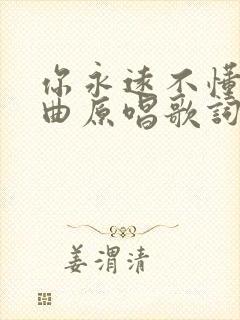 你永远不懂
曲原唱歌詞
姜渭清